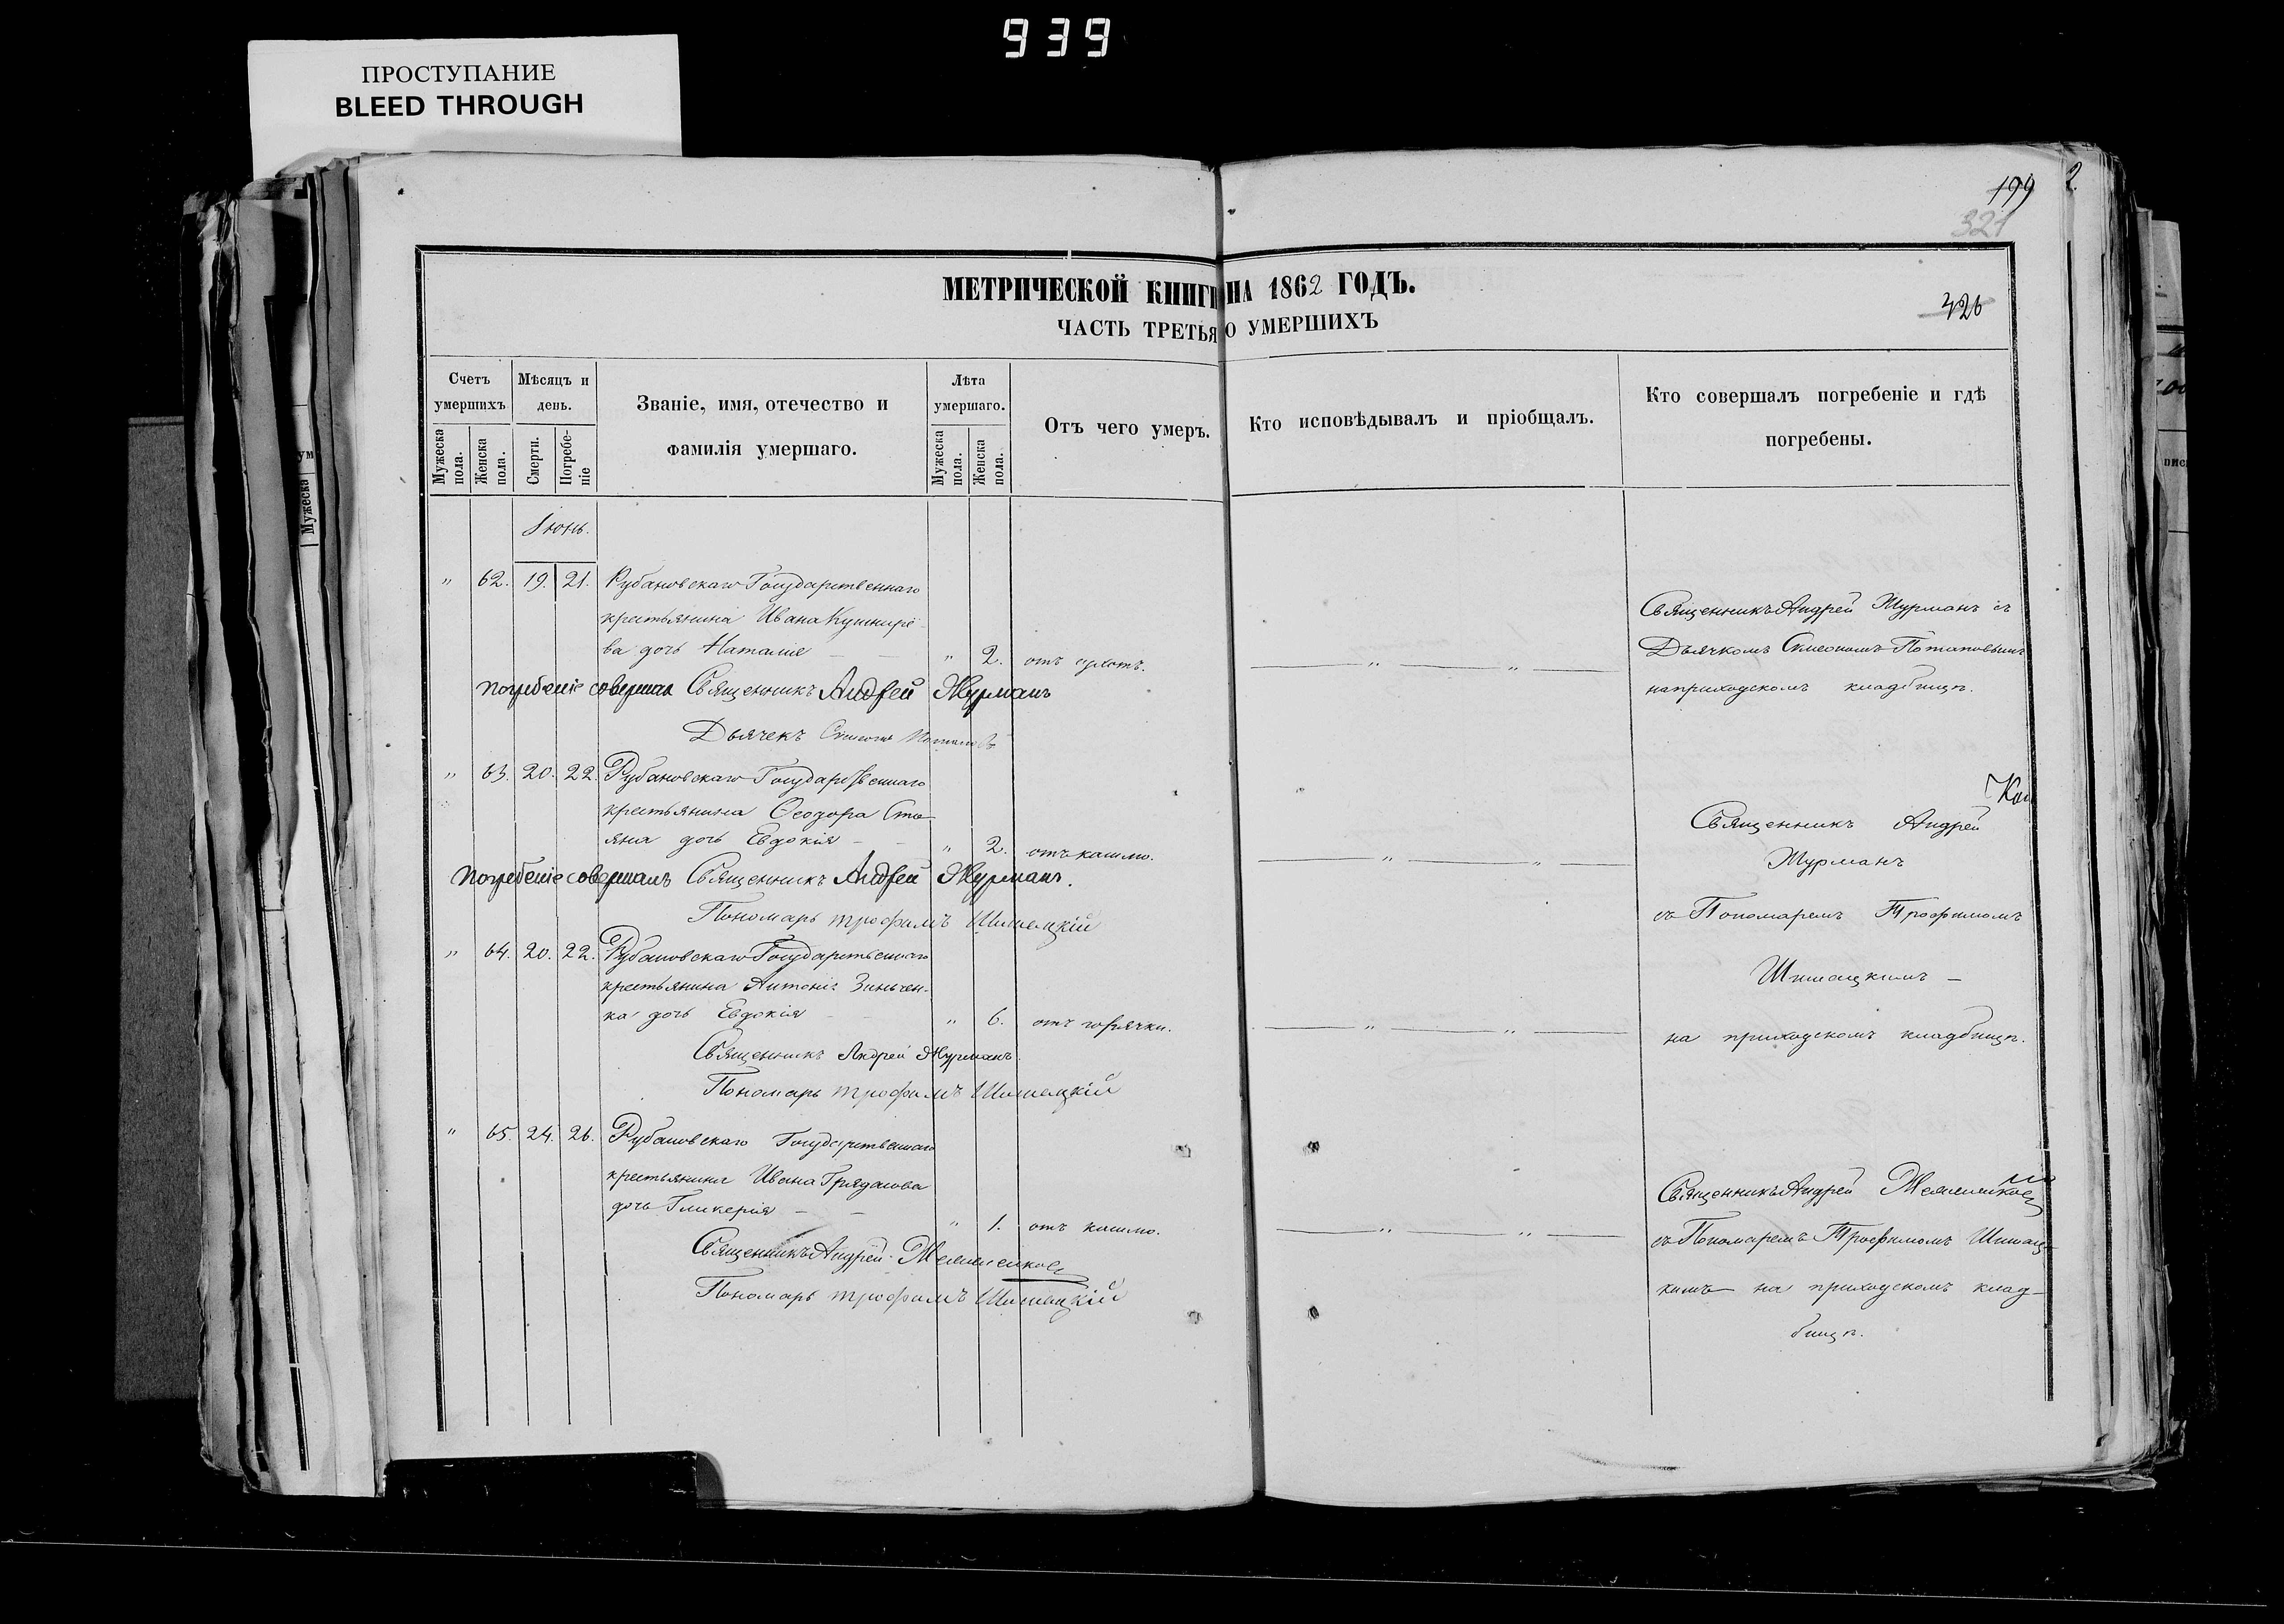 939
ПРОСТУПАНИЕ
BLEED THROUGH
199
2
321
МЕТРИЧЕСКОЙ КНИГИ НА 1862 ГОДЪ.
326
ЧАСТЬ ТРЕТЬЯ О УМЕРШИХЪ
Счетъ умершихъ
Мѣсяцъ и день.
Званіе, имя, отечество и фамилія умершаго.
Лѣта умершаго.
Отъ чего умеръ.
Кто исповѣдывалъ и пріобщалъ.
Кто совершалъ погребеніе и гдѣ погребены.
Мужеска пола.
Женска пола.
Смерти.
Погребеніе
Мужеска пола.
Женска пола.
Іюнь.
" 62. 19. 21. Рубановскаго Государственнаго
крестьянина Ивана Кушнире-
ва дочь Наталія " 2. отъ " "
Священникъ Андрей Журманъ съ
Дьячкомъ Симеономъ Потаповымъ
на приходскомъ кладбищѣ.
Погребеніе совершал Священникъ Андрей Журманъ
Дьячек Потаповъ
" 63. 20. 22. Рубановскаго Государственнаго
крестьянина Ѳеодора Сто-
яна дочь Евдокія " 2. отъ кашлю. " "
Священникъ Андрей
Журманъ
съ Пономаремъ Трофимомъ
Шишацкимъ
на приходскомъ кладбищѣ.
Погребеніе совершалъ Священникъ Андрей Журманъ.
Пономарь Трофимъ Шишацкій
" 64. 20. 22. Рубановскаго Государственнаго
крестьянина Антонія Зинчен-
ка дочь Евдокія " 6. отъ горячки. " "
Священникъ Андрей Журманъ.
Пономарь Трофимъ Шишацкій
" 65. 24. 26. Рубановскаго Государственнаго
крестьянина Ивана Грядасова
дочь Гликерія " 1. отъ кашлю. " "
Священникъ Андрей
съ Пономаремъ Трофимомъ Шишац-
кимъ на приходскомъ клад-
бищѣ.
Священникъ Андрей
Пономарь Трофимъ Шишацкій